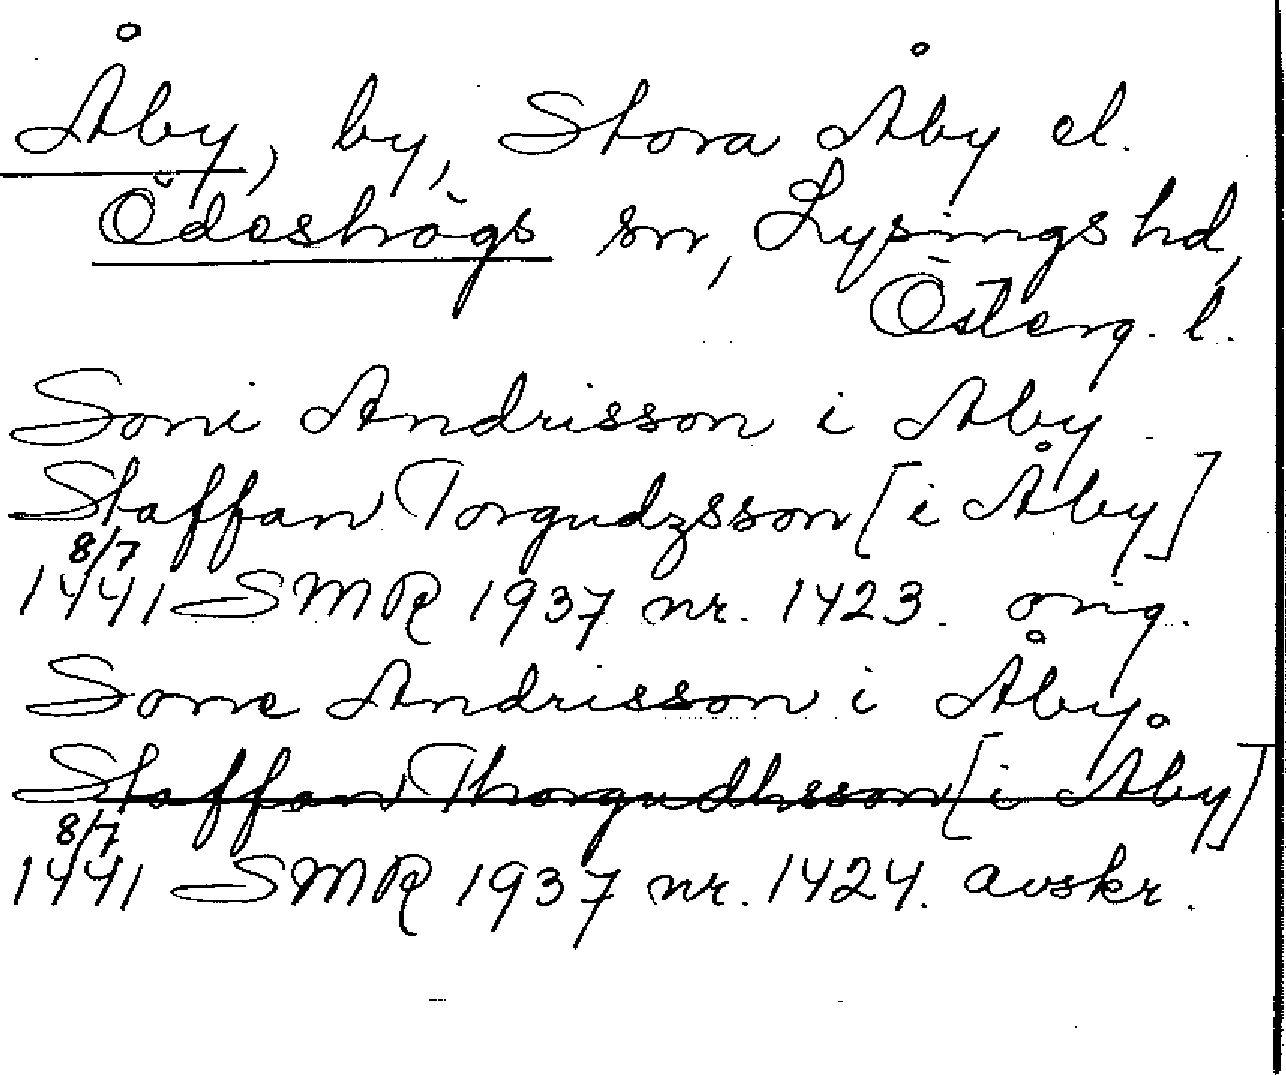 Åby, by, Stora Åby el.
Ödeshögs sn, Lysings hd,
Österg. l.
Soni Andrisson i Åby
Staffan Torgudzsson [i Åby]
8/7
1441 SMR 1937 nr. 1423. orig.
Sone Andrisson i Åby.
Staffan Thorgudhsson [i Åby]
8/7
1441 SMR 1937 nr. 1424. avskr.